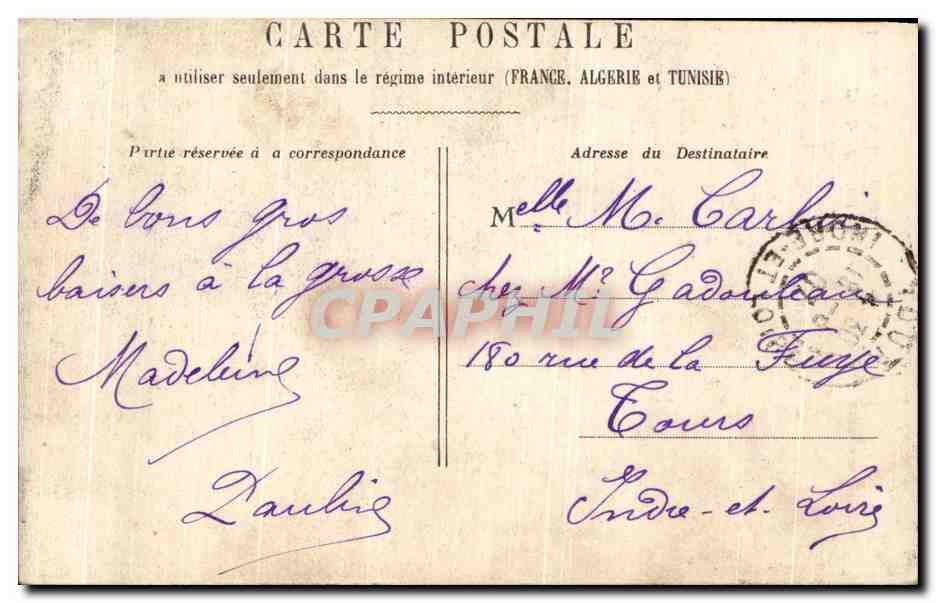 CARTE POSTALE
a utiliser seulement dans le régime intérieur (FRANCE, ALGERIE et TUNISIE)
Partie réservée à a correspondance
De bons gros
baisers à la grosse
Madeleine
Adresse du Destinataire
Melle M.
chez Mr Gadouleau
180 rue de la Fuye
Tours
Indre-et-Loire
CPAPHIL
INDRE-ET-LOIRE